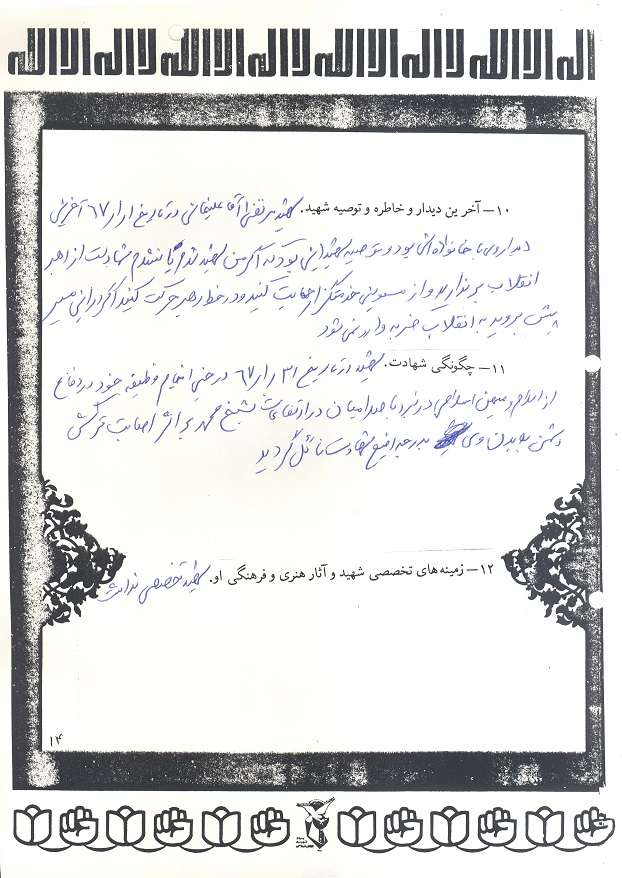 لا اله الا الله لا اله الا الله لا اله الا الله
۱۰– آخرین دیدار و خاطره و توصیه شهید. شهید مرتضی آقا علیخانی در تاریخ ۱ر۱ر۶۷ آخرین
دیدار وی با خانواده‌اش بود و توصیه شهید این بود که اگر من شهید شدم یا نشدم شما دست از رهبر
انقلاب برندارید و از مسولین خدمتگزار حمایت کنید و در خط رهبر حرکت کنید اگر در این مسیر
پیش بروید به انقلاب ضربه وارد نمی‌شود
۱۱– چگونگی شهادت. شهید در تاریخ ۳۱ر۱ر۶۷ در حین انجام وظیفه خود در دفاع
از اسلام و میهن اسلامی در نبرد با صدامیان در ارتفاعات شیخ محمد بر اثر اصابت ترکش
دشمن به بدن وی به درجه رفیع شهادت نائل گردید
۱۲– زمینه‌های تخصصی شهید و آثار هنری و فرهنگی او. شهید تخصصی نداشت
۱۴